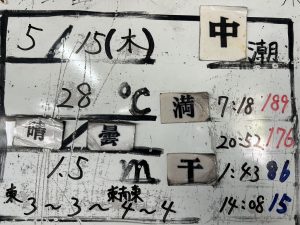 5/15(木) 中潮
28℃ 満 7:18 189
晴/曇 20:52 176
1.5m 干 1:43 86
東 東南東 14:08 15
3~3~4~4